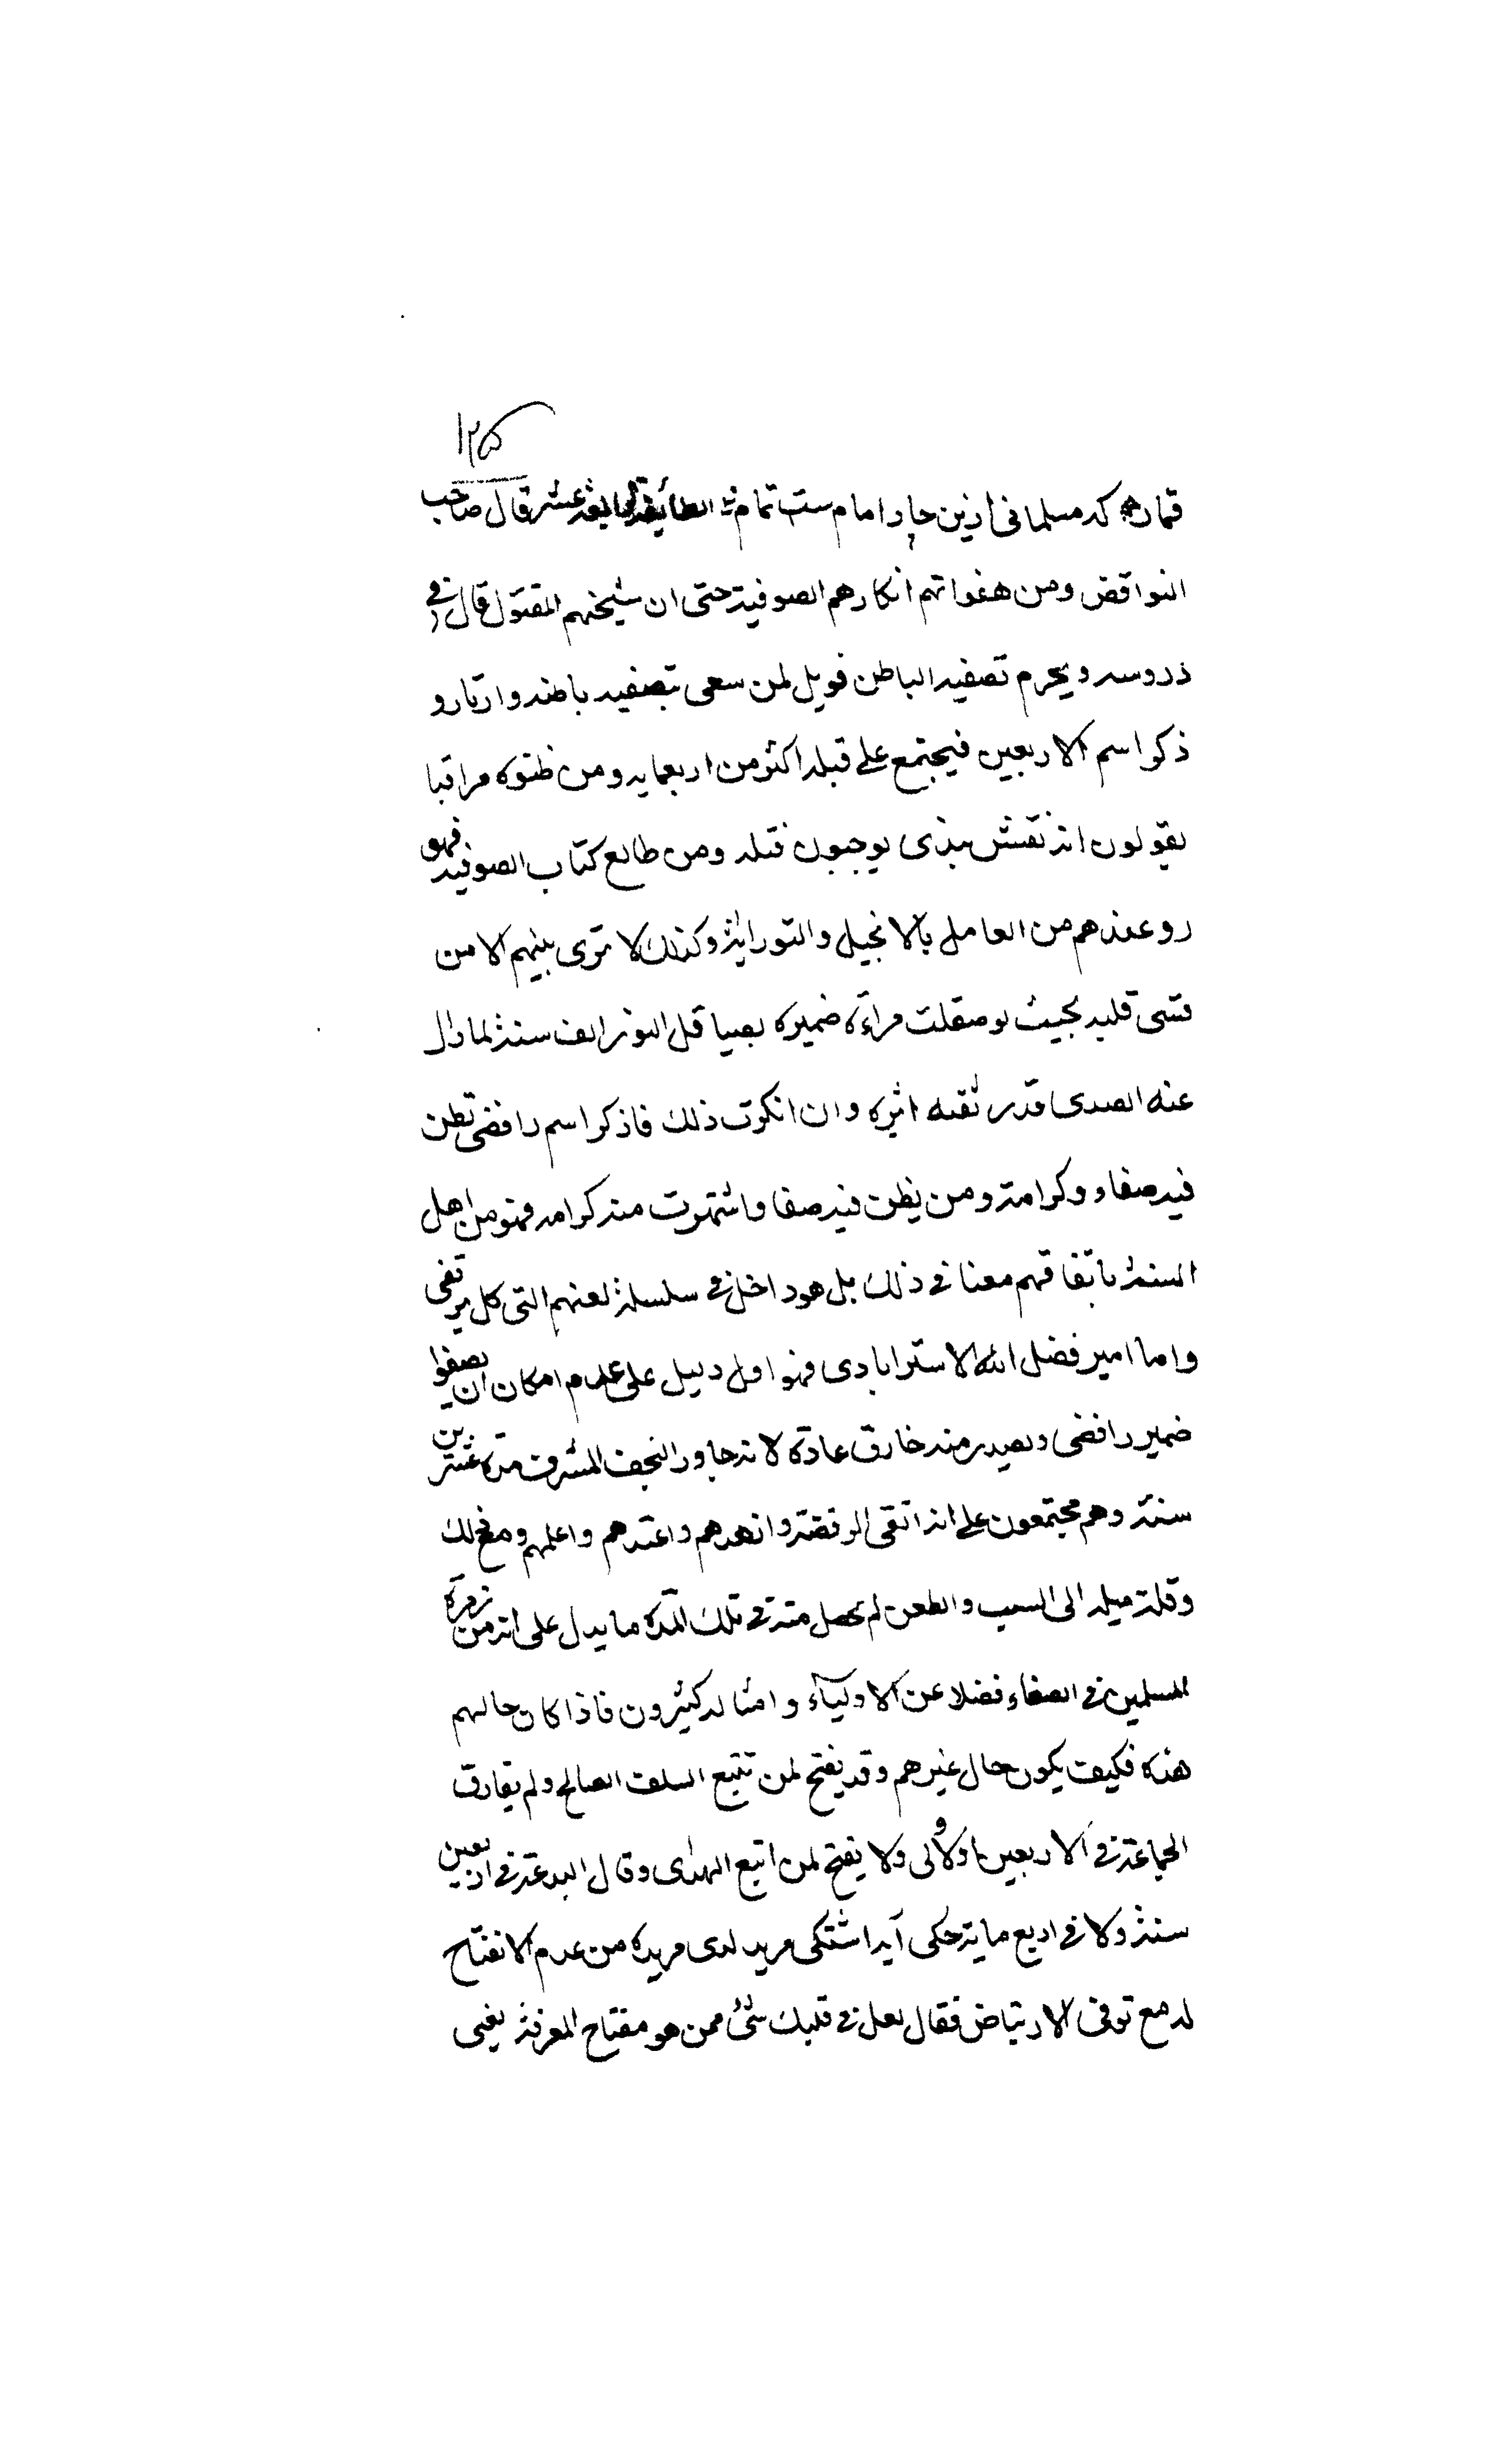 ١٢۵
كه مسلمانى ازين چار امام ست تمام الطائفة الرابعة عشر قال صاحب
النواقض ومن هفواتهم انكارهم الصوفية حتى ان شيخهم المقتول قال فى
دروسه ويحرم تصفيه الباطن فويل لمن سعى بتصفيه باطنه و
ذكر اسم الاربعين فيجتمع على قتله اكثر من اربعمايه ومن ظنوه مراقبا
يقولون انه نقشبندى يوجبون قتله ومن طالع كتاب الصوفيه فهو
عندهم من العامل بالانجيل والتوراية وكذلك لا ترى بينهم الا من
قسى قلبه بحيث لو صقلت مرآة ضميره بصياقل النور الف سنة لما زال
عنه الصدى قدر ثقبه ابره وان انكرت ذلك فاذكر اسم رافضى تظن
فيه صفاء وكرامة ومن يظن فيه صفا واشتهرت منه كرامه فهو من اهل
السنة باتفاقهم معنا فى ذلك بل هو داخل فى سلسلة لعنهم التى كل
واما امير فضل الله الاسترابادى فهو اول دليل على عدم امكان ان يصفوا
ضمير رافضى ويصدر منه خارق عادة لانه جاور النجف المشرف مدة عشرين
سنة وهم مجتمعون على انه اتقى الرفضة وازهدهم واعبدهم واعلمهم ومع ذلك
وقلة ميله الى السب والطعن لم يحصل منه فى تلك المدة ما يدل على انه من زمرة
المسلمين فى الصفاء فضلا عن الاولياء وامثاله كثيرون فاذا كان حالهم
هذه فكيف يكون حال غيرهم وقد يفتح لمن تتبع السلف الصالح ولم يفارق
الجماعة فى الاربعين الاولى ولا يفتح لمن اتبع الهداى وقال البدعة فى اربعين
سنة ولا فى اربع ماية حكى انه اشتكى مريد لدى مريده من عدم الانفتاح
له مع توفى الارتياض فقال لعل فى قلبك شئ ممن هو مفتاح المعرفة يعنى